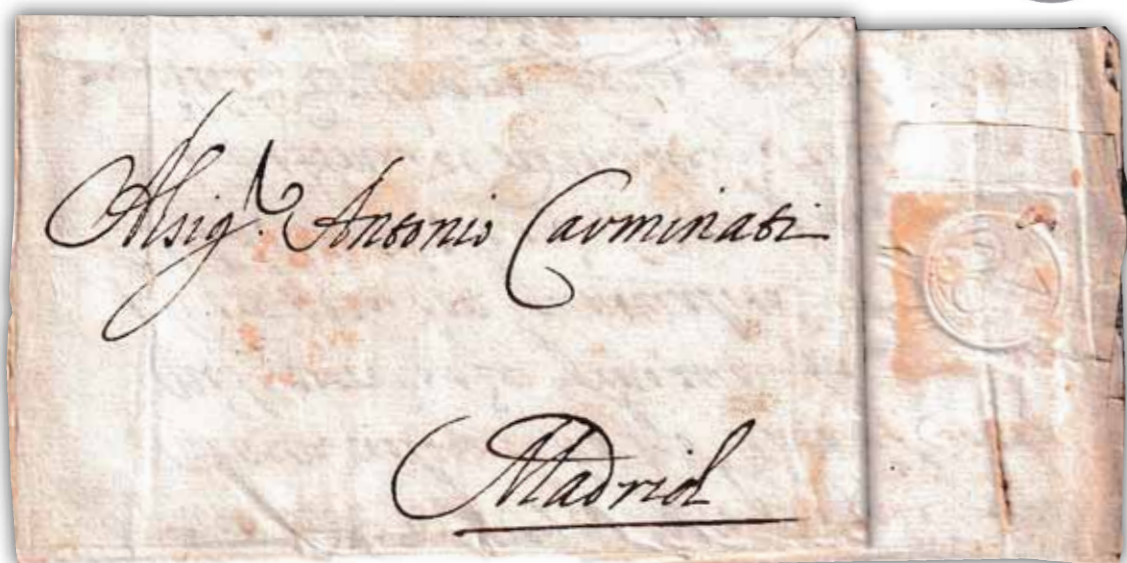 Al sig.r Antonio Carminati
Madrid